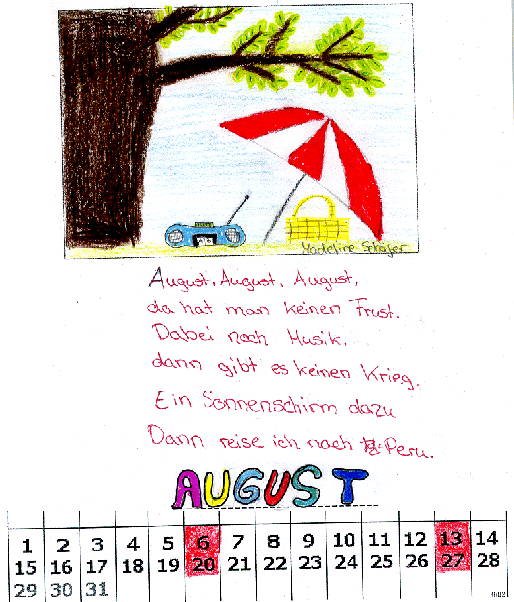 Madeline Schäfer
August, August, August,
da hat man keinen Frust.
Dabei noch Musik,
dann gibt es keinen Krieg.
Ein Sonnenschirm dazu
Dann reise ich nach Peru.
AUGUST
1 2 3 4 5 6 7 8 9 10 11 12 13 14
15 16 17 18 19 20 21 22 23 24 25 26 27 28
29 30 31